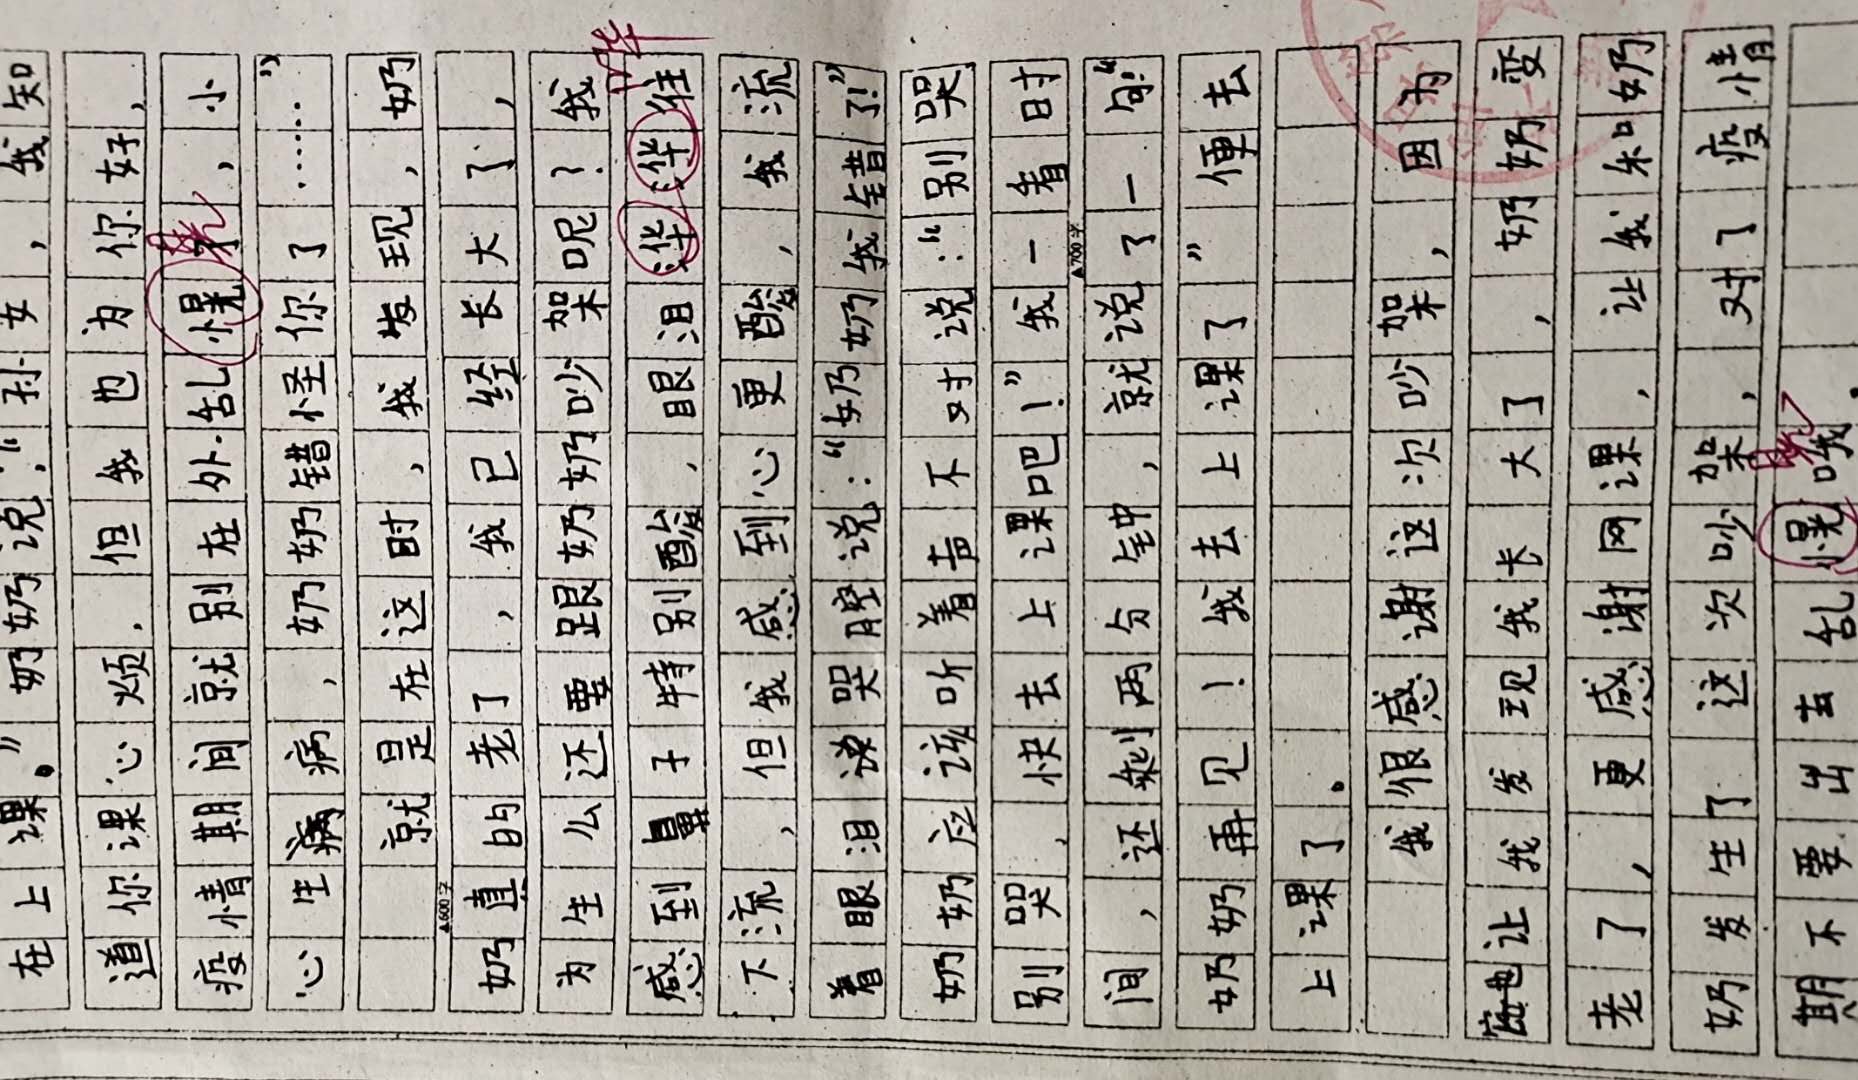 在上课。”奶奶说,“孙女,我知
道你课心烦,但我也为你好,
疫情期间就别在外乱愰,小
晃
心生病病,奶奶错怪你了……”
就是在这时,我发现,奶
▲600字
奶真的老了,我已经长大了,
为生么还要跟奶奶吵架呢?我
哗
感到鼻子特别酸,眼泪往
下流,但我感到心更酸,我流
着眼泪哭腔说:“奶奶我错了!”
奶奶应该听着声不对说:“别哭
别哭,快去上课吧!”我一看时
▲700字
间,还剩两分钟,就说了一句:“
奶奶再见!我去上课了”便去
上课了。
我很感谢这次吵架,因为
她让我发现我长大了,奶奶变
老了,更感谢网课,让我知奶
奶发生了这次吵架,对了疫情
期不要出去乱愰哦.
晃